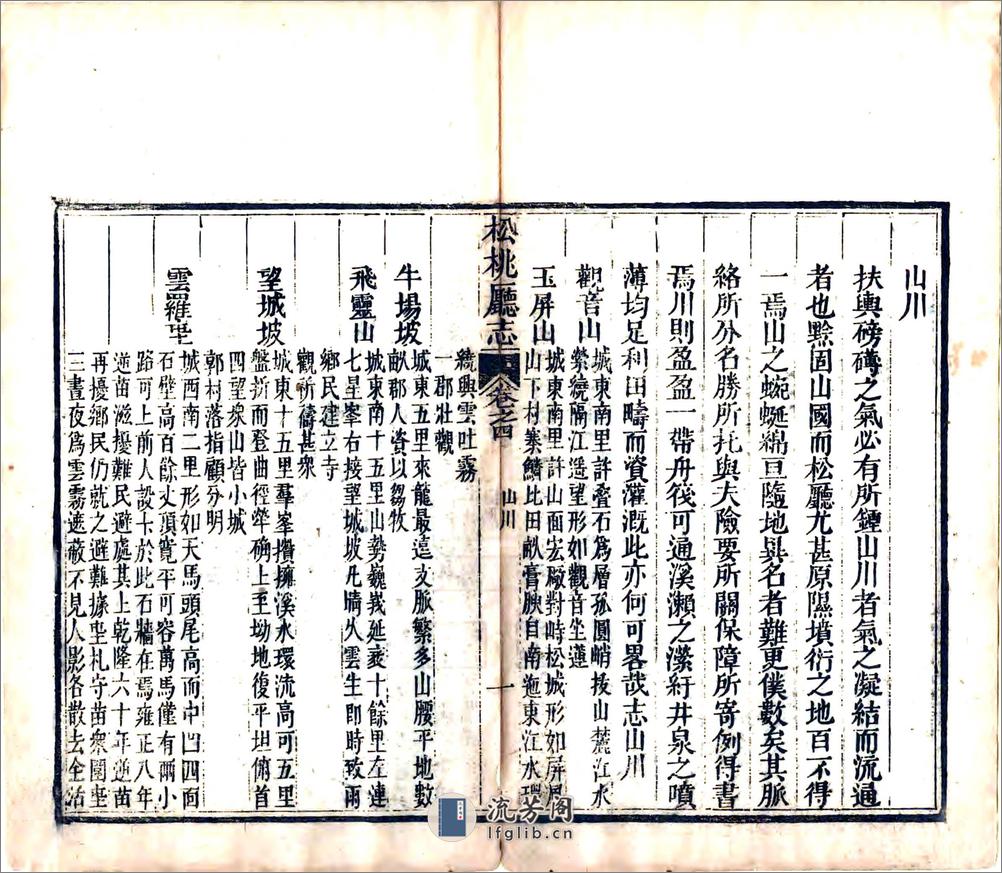 山川
扶輿磅礡之氣必有所鍾山川者氣之凝結而流通
者也黔固山國而松廳尤甚原隰墳衍之地百不得
一焉山之蜿蜒綿亘隨地異名者難更僕數矣其脈
絡所分名勝所托與夫險要所關保障所寄例得書
焉川則盈盈一帶舟筏可通溪瀨之瀠紆井泉之噴
薄均足利田疇而資灌溉此亦何可畧哉志山川
觀音山
城東南里許叠石爲層孤圓峭拔山麓江水
縈繞隔江遥望形如觀音坐蓮
玉屏山
城東南里許山面宏敞對峙松城形如屏風
山下村寨鱗比田畝膏腴自南迤東江水環
松桃廳志
卷之四
山川
一
繞興雲吐霧
一郡壯觀
牛場坡
城東五里來龍最遠支脈繁多山腰平地數
畝郡人資以芻牧
飛靈山
城東南十五里山勢巍峩延袤十餘里左連
七星峯右接望城坡凡禱久雲生即時致雨
鄉民建立寺
觀祈禱甚衆
望城坡
城東十五里羣峯攢擁溪水環流高可五里
盤折而登曲徑犖确上至坳地復平坦俯首
四望衆山皆小城
郭村落指顧分明
雲羅屯
城西南二里形如天馬頭尾高而中凹四面
石壁高百餘丈頂寬平可容萬馬僅有兩小
路可上前人設卡於此石牆在焉雍正八年
逆苗滋擾難民避處其上乾隆六十年逆苗
再擾鄉民仍就之避難據屯札守苗衆圍屯
三晝夜爲雲霧遮蔽不見人影各散去全活
流芳阁
lfglib.cn